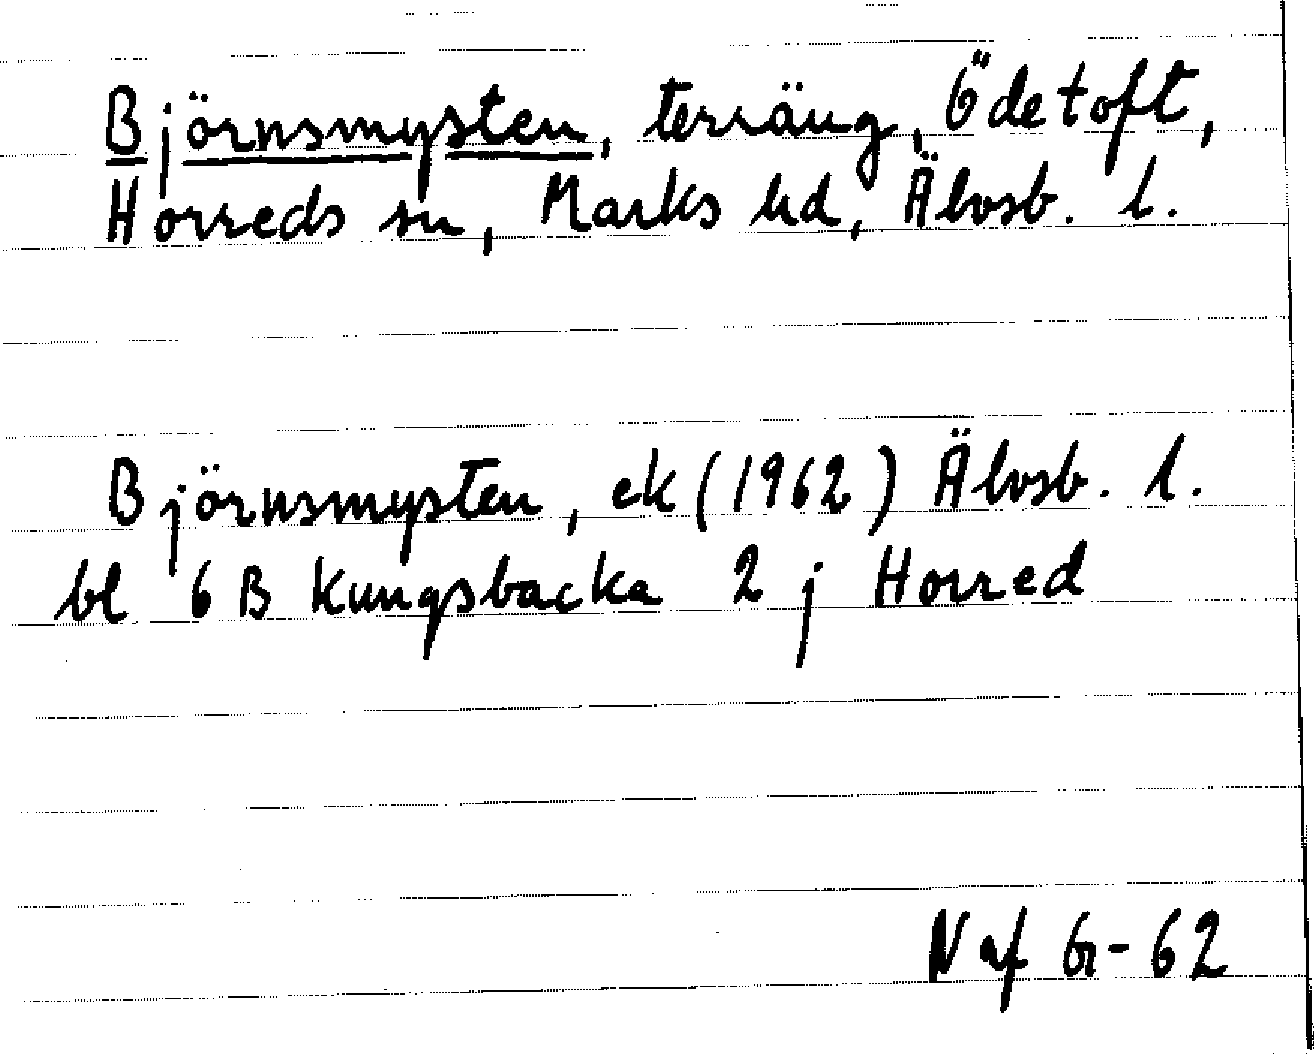 Björnsmysten, terräng, Ödetoft,
Horreds sn, Marks hd, Älvsb. l.
Björnsmysten, ek (1962) Älvsb. l.
bl 6 B Kungsbacka 2 j Horred
N af Gr-62